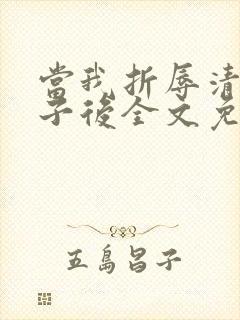 當我折辱清
子後全文免
五島昌子